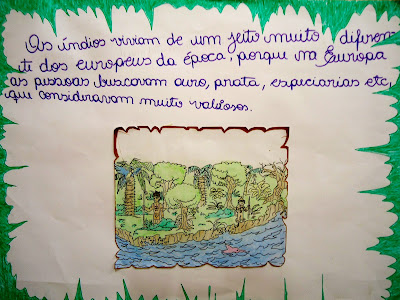 Os índios viviam de um jeito muito diferen
te dos europeus da época, porque na Europa
as pessoas buscavam ouro, prata, especiarias etc,
que consideravam muito valiosos.